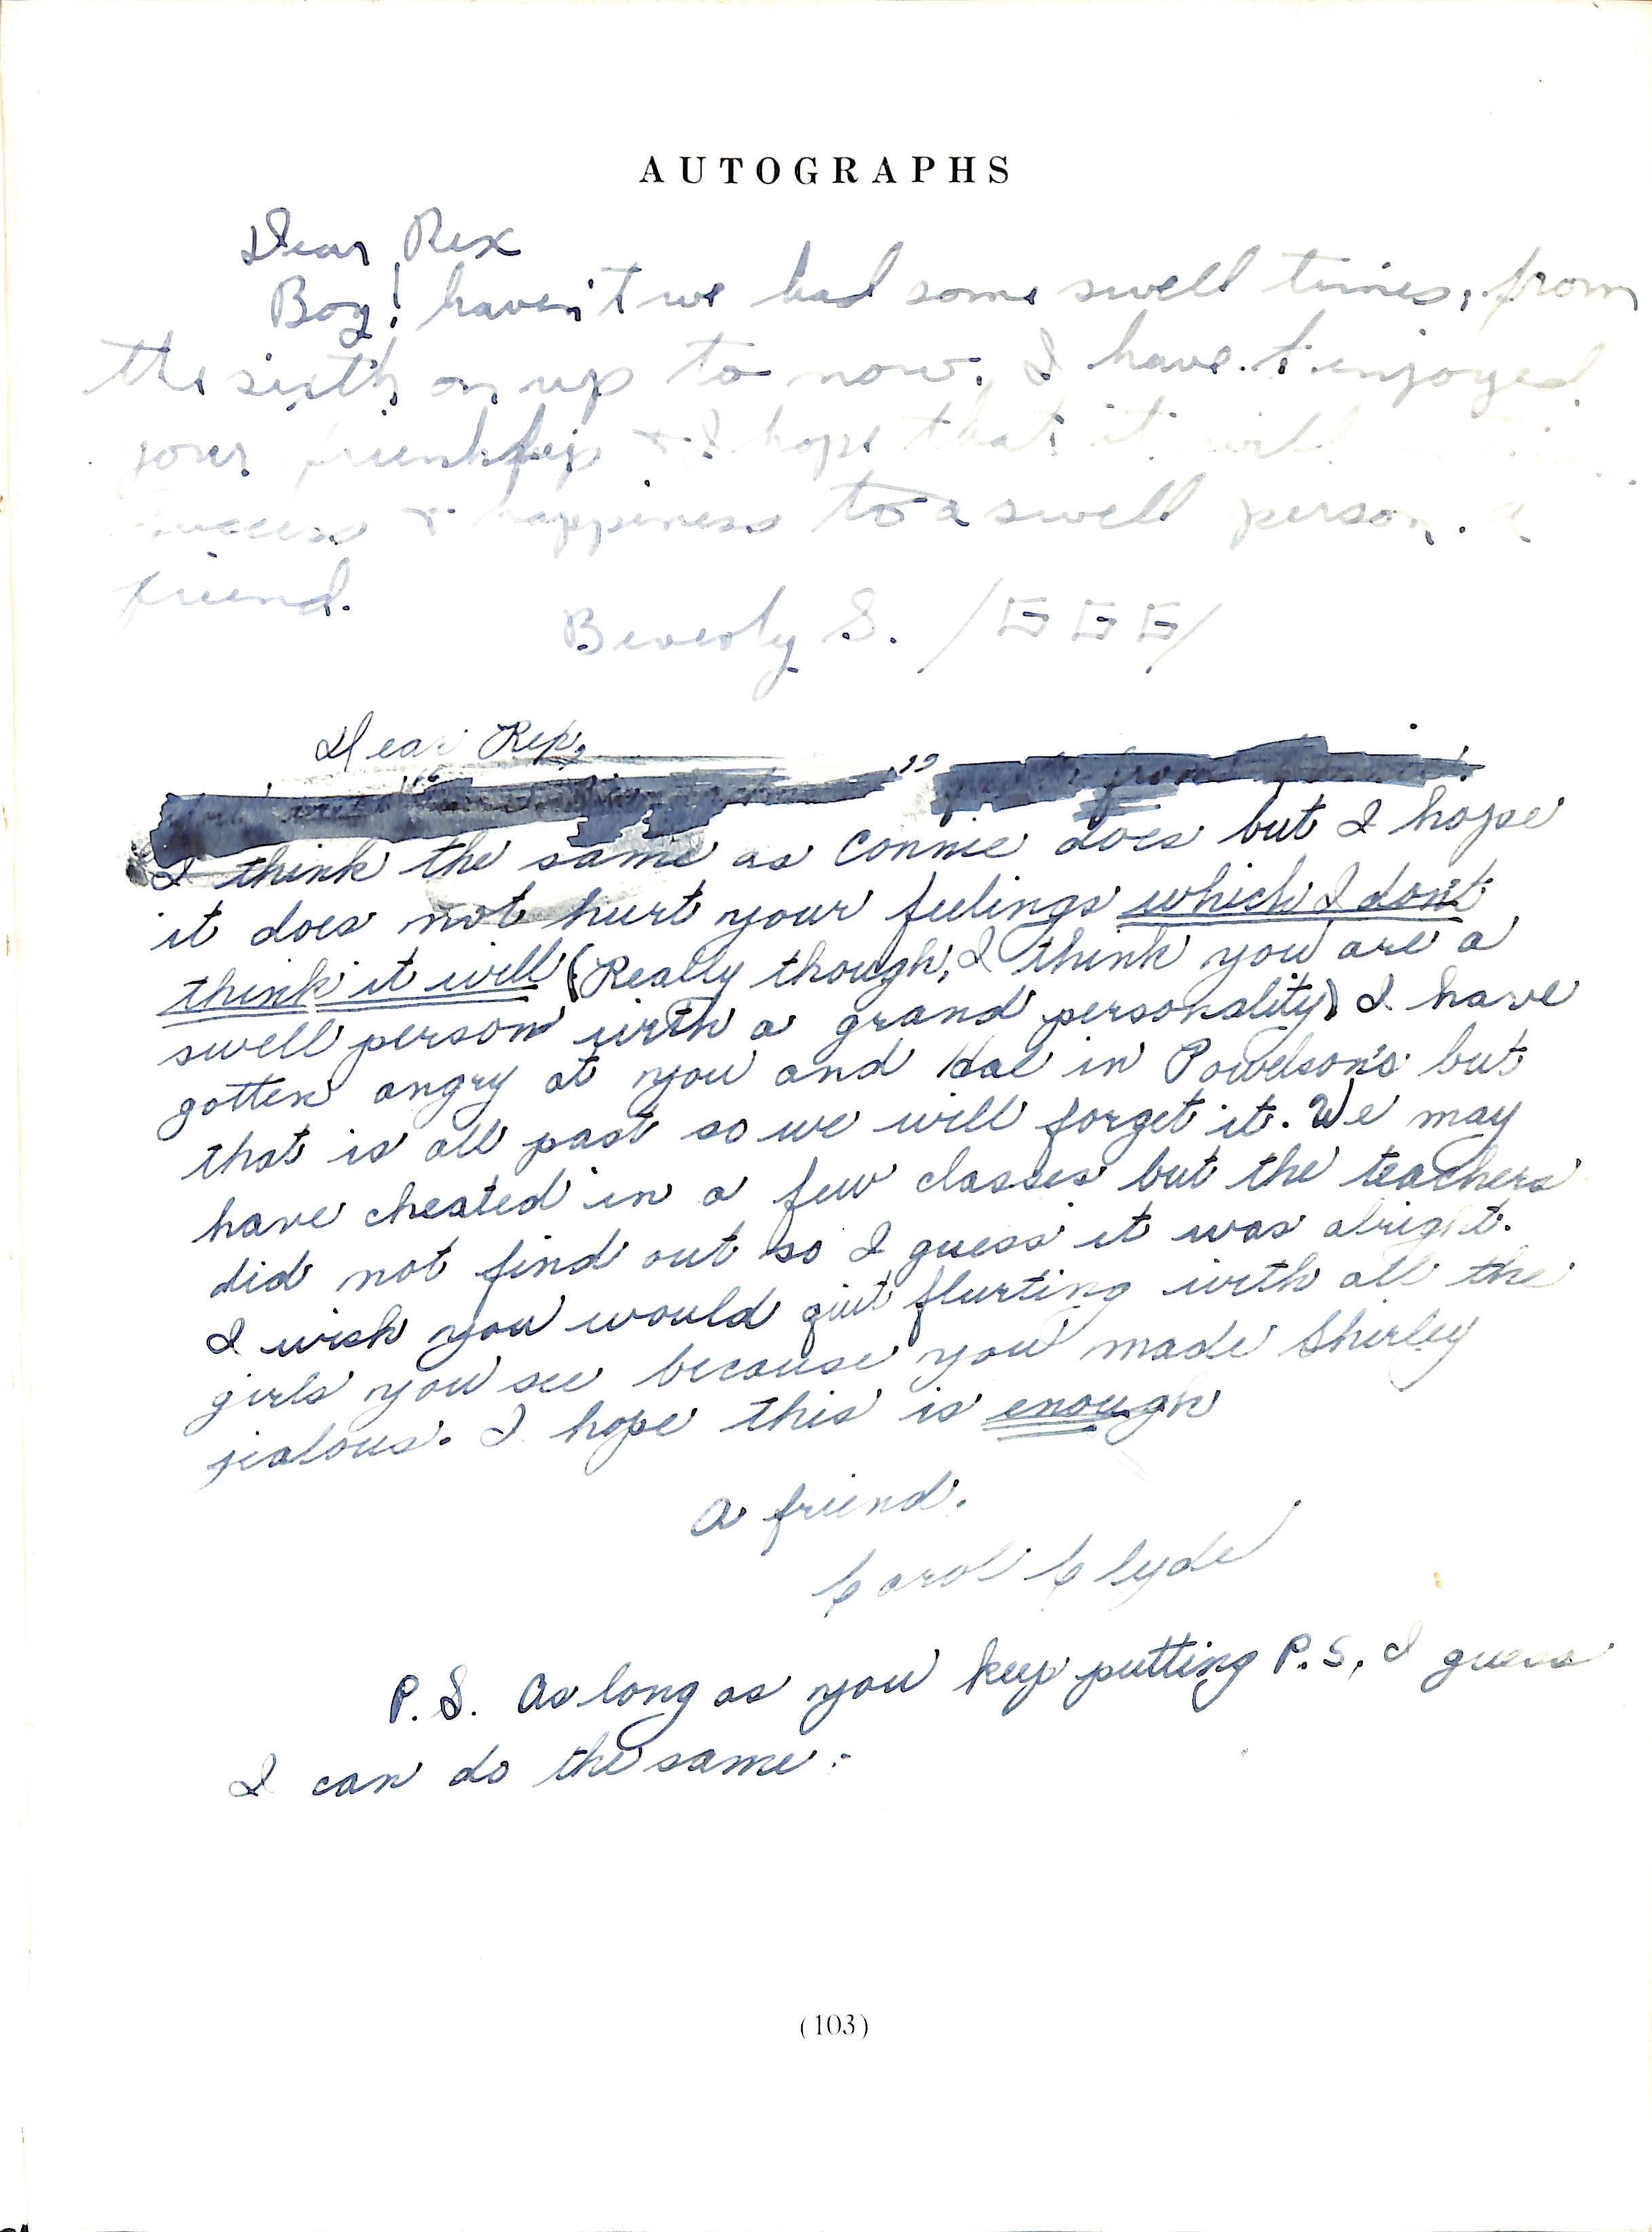 AUTOGRAPHS
Dear Rex
Boy! haven't we had some swell times, from
the sixth on up to now. I have enjoyed
your friendship + I hope that it will
Success + happiness to a swell person. a
friend.
Beverly S.
Dear Rex,
I think the same as Connie does but I hope
it does not hurt your feelings which I don't
think it will (Really though, I think you are a
swell person with a grand personality) I have
gotten angry at you and Hal in Powelson's but
that is all past so we will forget it. We may
have cheated in a few classes but the teachers
did not find out so I guess it was alright.
I wish you would quit flurting with all the
girls you see because you made Shirley
jealous. I hope this is enough
A friend.
Carol Clyde
P.S. As long as you keep putting P.S, I guess
I can do the same.
(103)